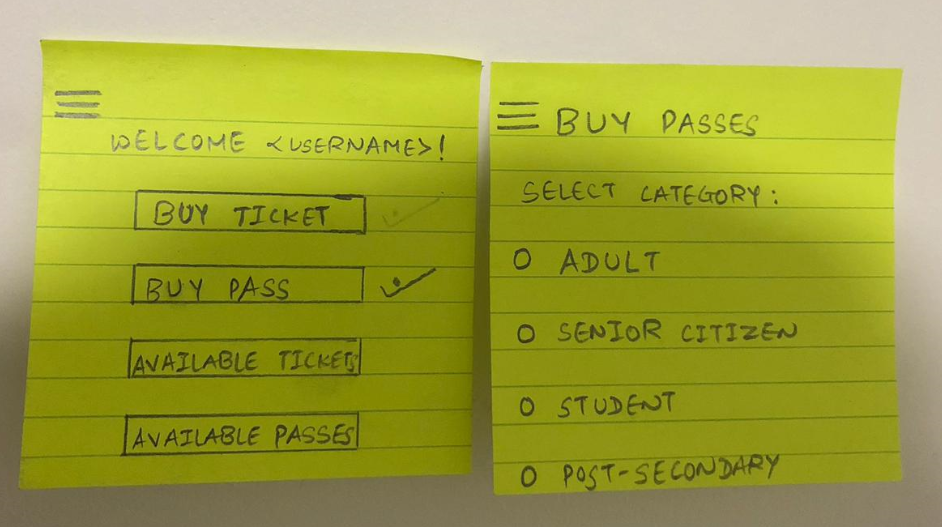 WELCOME <USERNAME>!
BUY TICKET
BUY PASS
AVAILABLE TICKETS
AVAILABLE PASSES
BUY PASSES
SELECT CATEGORY:
ADULT
SENIOR CITIZEN
STUDENT
POST-SECONDARY